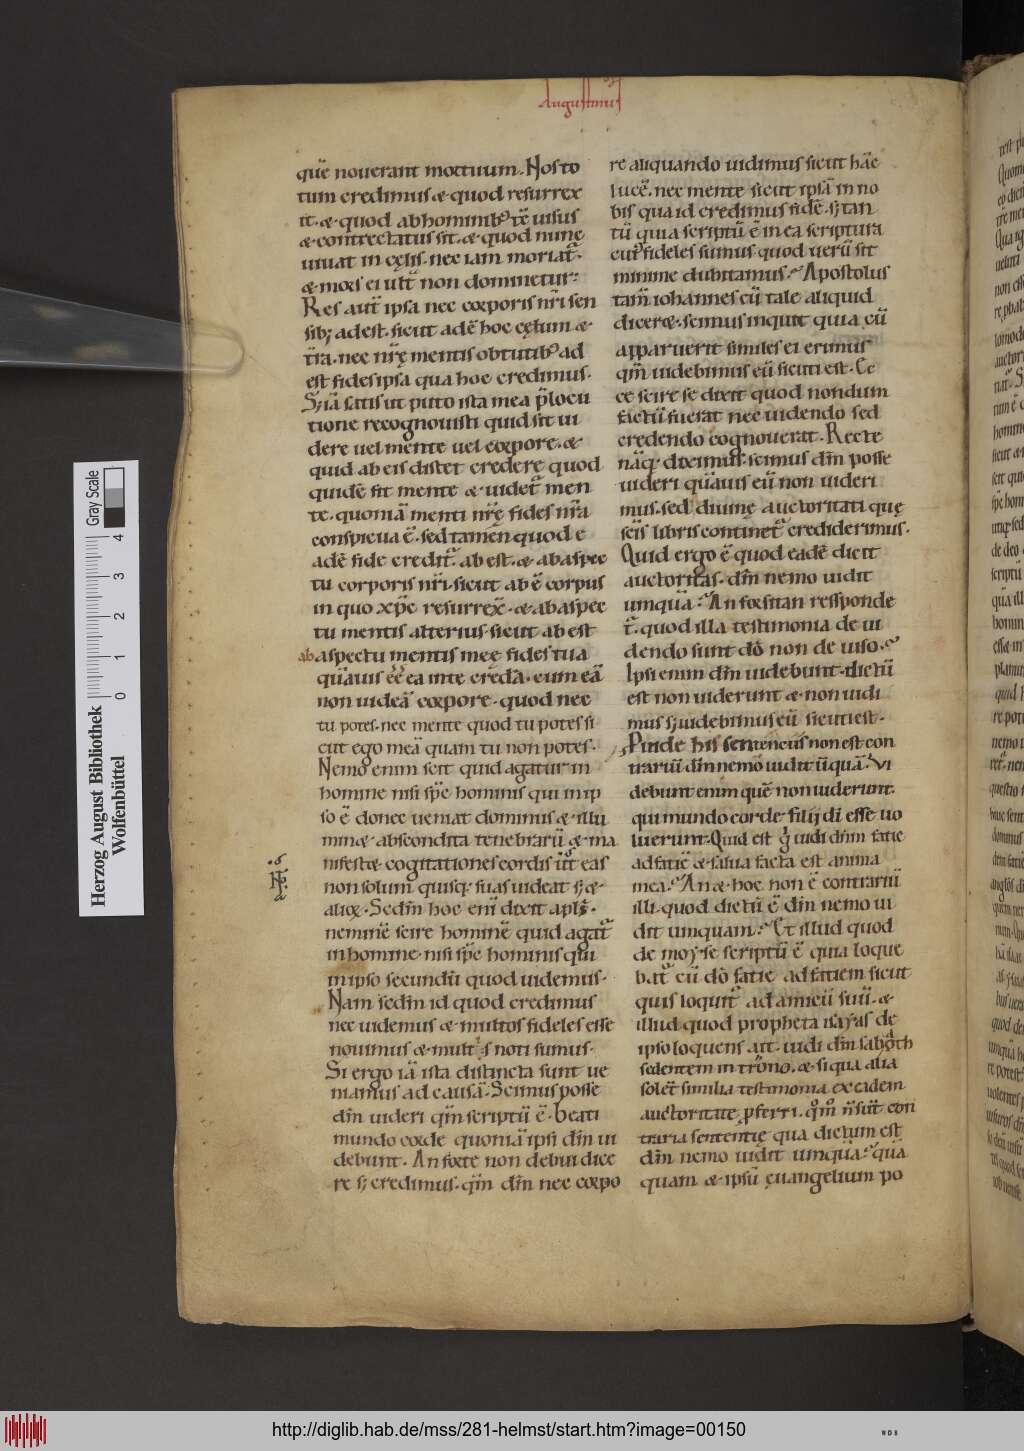 Augustinus
quē noverant mortuum. Nos to
tum credimus & quod resurrex
it. & quod ab hominib; ita uisus
& contrectatus sit. & quod nunc
uiuat in cęlis. nec iam moriat᷑.
& mors ei ult̄ non dominetur:
Res aut̄ ipsa nec corporis nr̄i sen
sib; adest. sicut adē hoc cęlum &
t̄ra. nec nr̄ę mentis obtutib; ad
est fides ipsa qua hoc credimus.
S; iā satis ut puto ista mea p̄locu
tione recognouisti quid sit ui
dere uel mente uel corpore. &
quid ab eis distet credere quod
quidē fit mente & uidet᷑ men
te. quoniā menti nr̄ę fides nr̄a
conspicua ē. sed tamen quod e
adē fide credit᷑. abest. & ab aspec
tu corporis nr̄i. sicut ab ē corpus
in quo xp̄c resurrex̄. & ab aspec
tu mentis alterius. sicut ab est
ab aspectu mentis mee fides tua
quāuis eē ea in te credā. cum eā
non uideā corpore. quod nec
tu potes. nec mente quod tu potes si
cut ego meā quam tu non potes.
Nemo enim scit quid agatur in
homine nisi sp̄c hominis qui in ip
so ē donec ueniat dominus & illu
min& abscondita tenebrarū & ma
nifest& cogitationes cordis ut eas
non solum quisq; suas uideat s; &
alior. Sedm̄ hoc enī dixit apl̄s.
neminē scire hominē quid agat᷑
in homine. nisi sp̄c hominis qui
in ipso secundū quod uidemus.
Nam sedm̄ id quod credimus
nec uidemus & multos fideles esse
nouimus & multis noti sumus.
Si ergo iā ista distincta sunt ue
niamus ad causā. Scimus posse
dm̄ uideri qm̄ scriptū ē. Beati
mundo corde quoniā ipsi dm̄ ui
debunt. An forte non debui dice
re s; credimus. qm̄ dm̄ nec corpo
re aliquando uidimus sicut hāc
lucē. nec mente sicut ipsā in no
bis qua id credimus fidē. s; tan
tū quia scriptū ē in ea scriptura
cui᷒ fideles sumus quod uerū sit
minime dubitamus. Apostolus
tam̄ iohannes cū tale aliquid
dicer&. scimus inquit quia cū
apparuerit similes ei erimus
qm̄ uidebimus eū sicuti est. Ec
ce scire se dixit quod nondum
factū fuerat nec uidendo sed
credendo cognouerat. Recte
nāq; diximus. scimus dm̄ posse
uideri quāuis eū non uideri
mus. sed diuinę auctoritati quę
scīs libris continet᷑ crediderimus.
Quid ergo ē quod eadē dicit
auctoritas. dm̄ nemo uidit
umquā. An forsitan responde
t᷑. quod illa testimonia de ui
dendo sunt dō non de uiso.
Ipsi enim dm̄ uidebunt. dictū
est non uiderunt & non uidi
mus s; uidebimus eū sicuti est.
Puide his sentencus non est con
trariū dm̄ nemo uidit ūquā. Vi
debunt enim quē non uiderunt.
qui mundo corde. filij di esse uo
luerunt. Quid est g̊ uidi dn̄m facie
ad faciē & salua facta est anima
mea. An & hoc non ē contrariū
illi. quod dictū ē dm̄ nemo ui
dit umquam. Et illud quod
de moyse scriptū ē quia loque
bat᷑ cū dō facie ad faciem sicut
quis loquit᷑ ad amicū suū. &
illud quod propheta isayas de
ipso loquens ait. uidi dn̄m sabaoth
sedentem in trono. & si qua alia
solet similia testimonia ex eadem
auctoritate p̱ferri. qm̊ n̄ sūt con
traria sententię qua dictum est
dm̄ nemo uidit umquā. quā
quam & ipsū ęuangelium po
Herzog August Bibliothek
Wolfenbüttel
0 1 2 3 4
Gray Scale
http://diglib.hab.de/mss/281-helmst/start.htm?image=00150